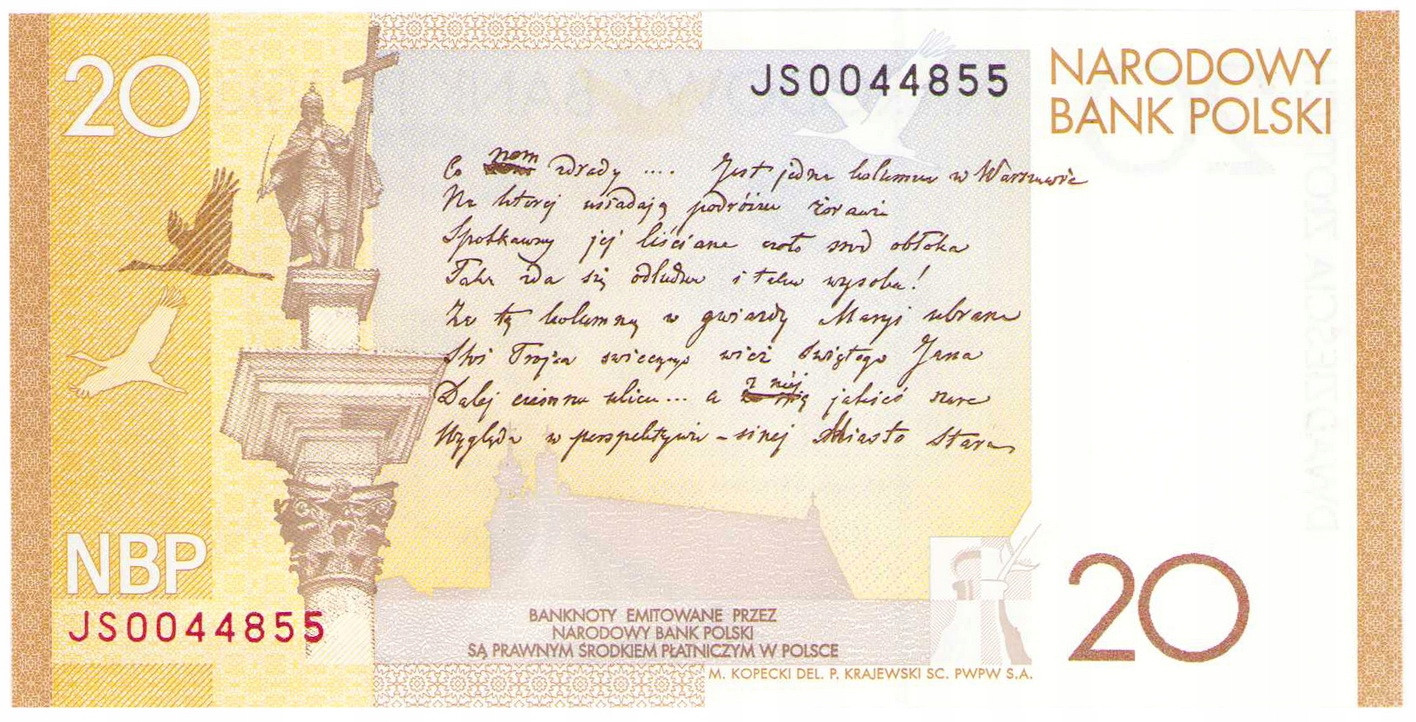 20
JS0044855
NARODOWY
BANK POLSKI
nom
Co zdrady .... Jest jedna kolumna w Warszawie
Na której usiadają podróżne żurawie
Spotkawszy jej liściane czoło śród obłoka
Taka zda się odludna i taka wysoka!
Za tą kolumną w gwiazdy Maryi ubrana
Stoi Trójca święcącego wież świętego Jana
z niéj
Dalej ciemna ulica... a jakieś szare
Wygląda w perspektywie - sinej Miasto Stare
NBP
JS0044855
BANKNOTY EMITOWANE PRZEZ
NARODOWY BANK POLSKI
SĄ PRAWNYM ŚRODKIEM PŁATNICZYM W POLSCE
M. KOPECKI DEL. P. KRAJEWSKI SC. PWPW S.A.
20